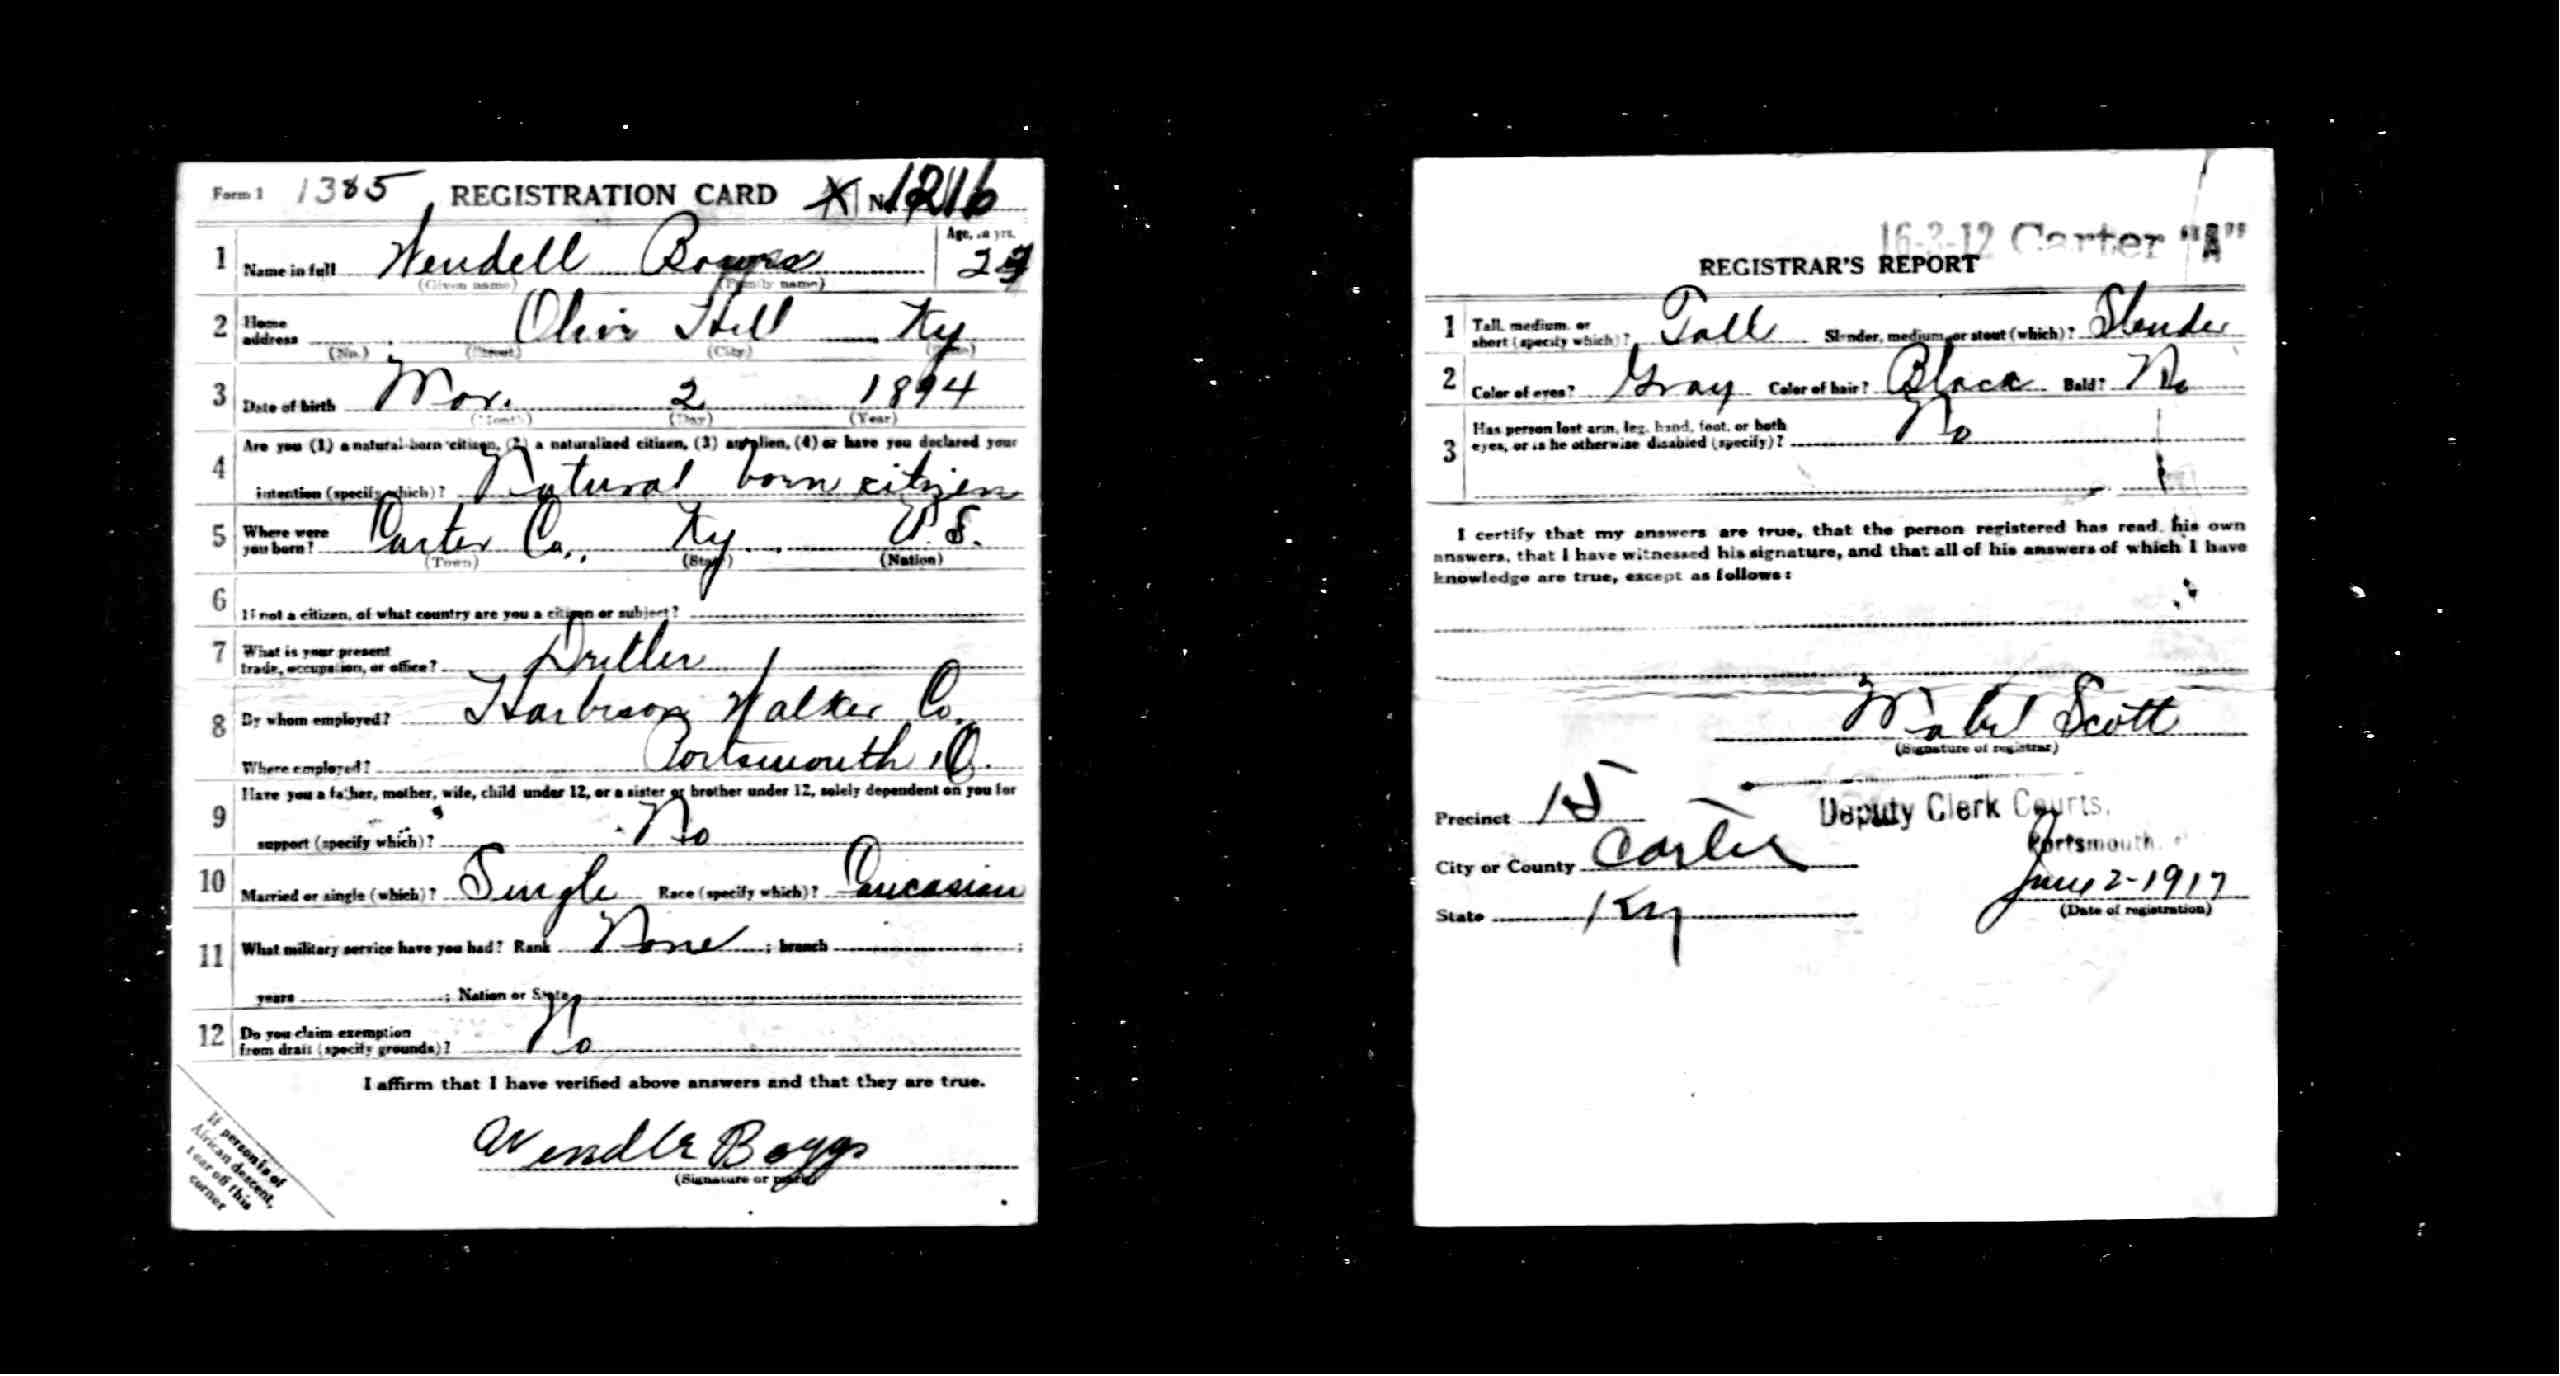 Form 1 1385 REGISTRATION CARD No. 1216
1 Name in full Wendell Boggs Age, in yrs. 23
(Given name) (Family name)
2 Home address Olive Hill Ky
(No.) (Street) (City) (State)
3 Date of birth Mar. 2 1894
(Month) (Day) (Year)
4 Are you (1) a natural-born citizen, (2) a naturalized citizen, (3) an alien, (4) or have you declared your
intention (specify which)? Natural born citizen
5 Where were you born? Carter Co., Ky, U.S.
(Town) (State) (Nation)
6 If not a citizen, of what country are you a citizen or subject?
7 What is your present trade, occupation, or office? Driller
8 By whom employed? Harbison Walker Co.
Where employed? Portsmouth, O.
9 Have you a father, mother, wife, child under 12, or a sister or brother under 12, solely dependent on you for
support (specify which)? No
10 Married or single (which)? Single Race (specify which)? Caucasian
11 What military service have you had? Rank None ; branch ;
years ; Nation or State
12 Do you claim exemption from draft (specify grounds)? No
I affirm that I have verified above answers and that they are true.
Wendle Boggs
(Signature or mark)
If person is of
African descent,
tear off this
corner
16-3-12 Carter "A"
REGISTRAR'S REPORT
1 Tall, medium, or short (specify which)? Tall Slender, medium, or stout (which)? Slender
2 Color of eyes? Gray Color of hair? Black Bald? No
3 Has person lost arm, leg, hand, foot, or both
eyes, or is he otherwise disabled (specify)? No
I certify that my answers are true, that the person registered has read his own
answers, that I have witnessed his signature, and that all of his answers of which I have
knowledge are true, except as follows:
Mabel Scott
(Signature of registrar)
Precinct 15 Deputy Clerk Courts,
City or County Carter Portsmouth
State Ky June 2-1917
(Date of registration)